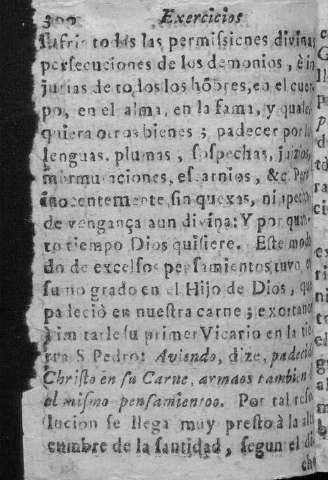 300 Exercicios
sufrir todas las permissiones divinas
persecuciones de los demonios, è in
jurias de todos los hõbres, en el cuer
po, en el alma, en la fama, y quales
quiera otros bienes; padecer por las
lenguas, plumas, sospechas, juizios,
murmuraciones, escarnios, &c.
inocentemente, sin quexas, ni
de vengança aun divina: Y por quan
to tiempo Dios quisiere. Este mo
do de excelsos pensamientos tuvo
su no grado en el Hijo de Dios, que
padeciò en nuestra carne; exortano
à imitarle su primer Vicario en la tie
rra S. Pedro: Aviendo, dize, padecido
Christo en su Carne, armaos tambien
el mismo pensamientos. Por tal reso
lucion se llega muy presto à la alta
cumbre de la santidad, segun el